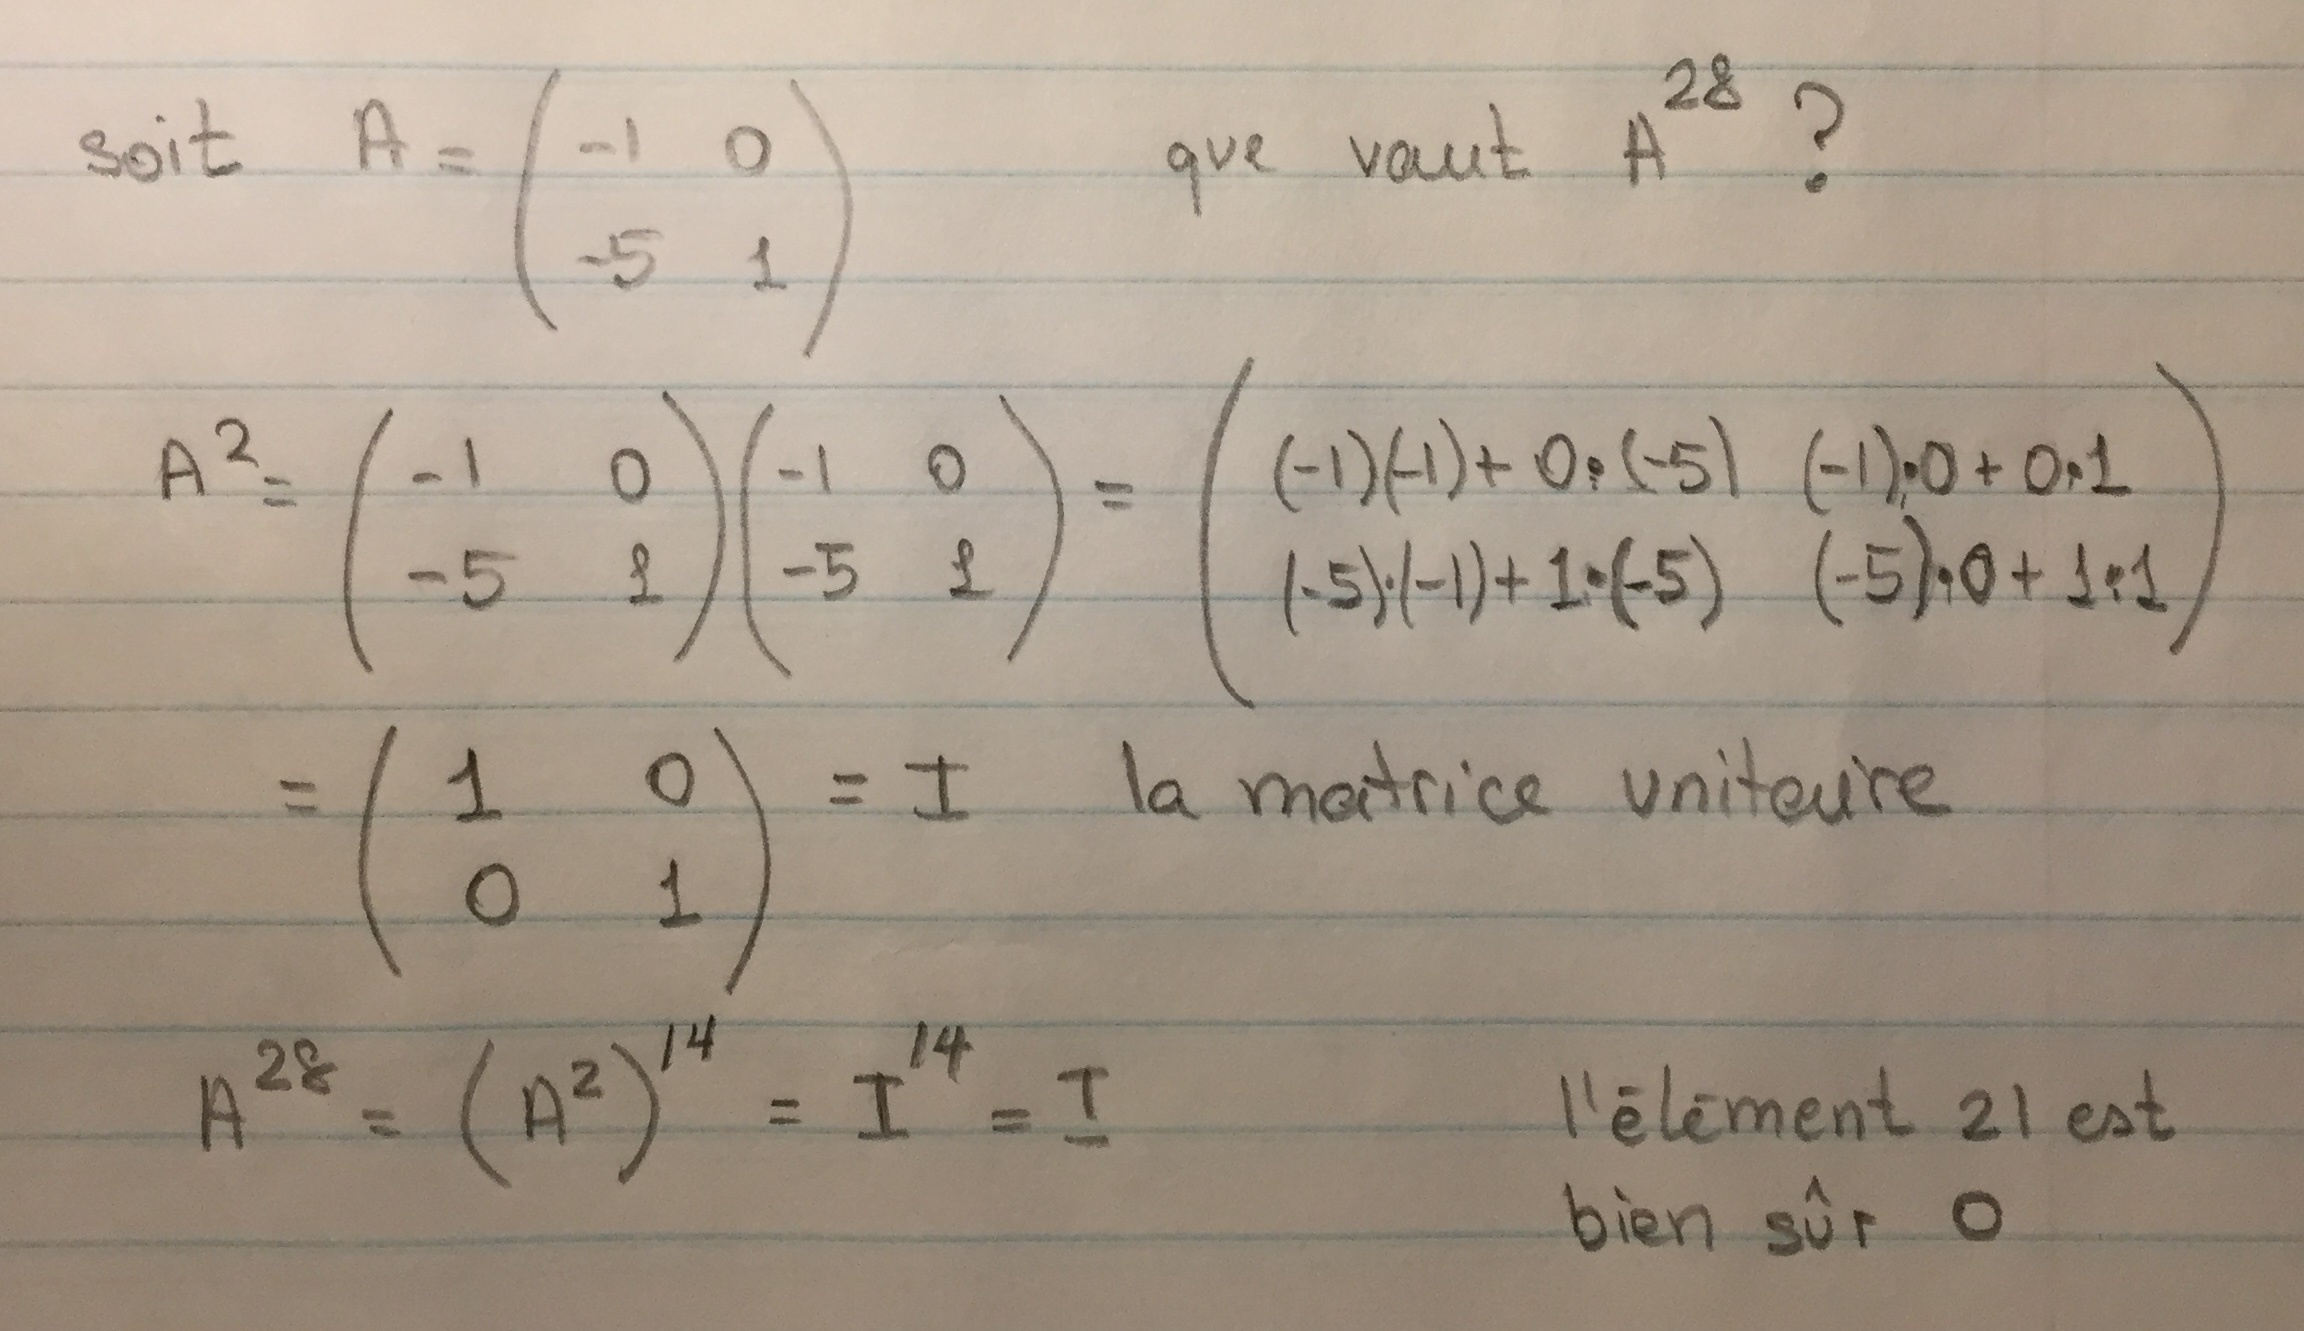 soit A = (-1 0 que vaut A^28 ?
-5 1)
A^2 = (-1 0 (-1 0 = ((-1)(-1)+0·(-5) (-1)·0+0·1
-5 1) -5 1) (-5)·(-1)+1·(-5) (-5)·0+1·1)
= (1 0 = I la matrice unitaire
0 1)
A^28 = (A^2)^14 = I^14 = I l'élément 21 est
bien sûr 0